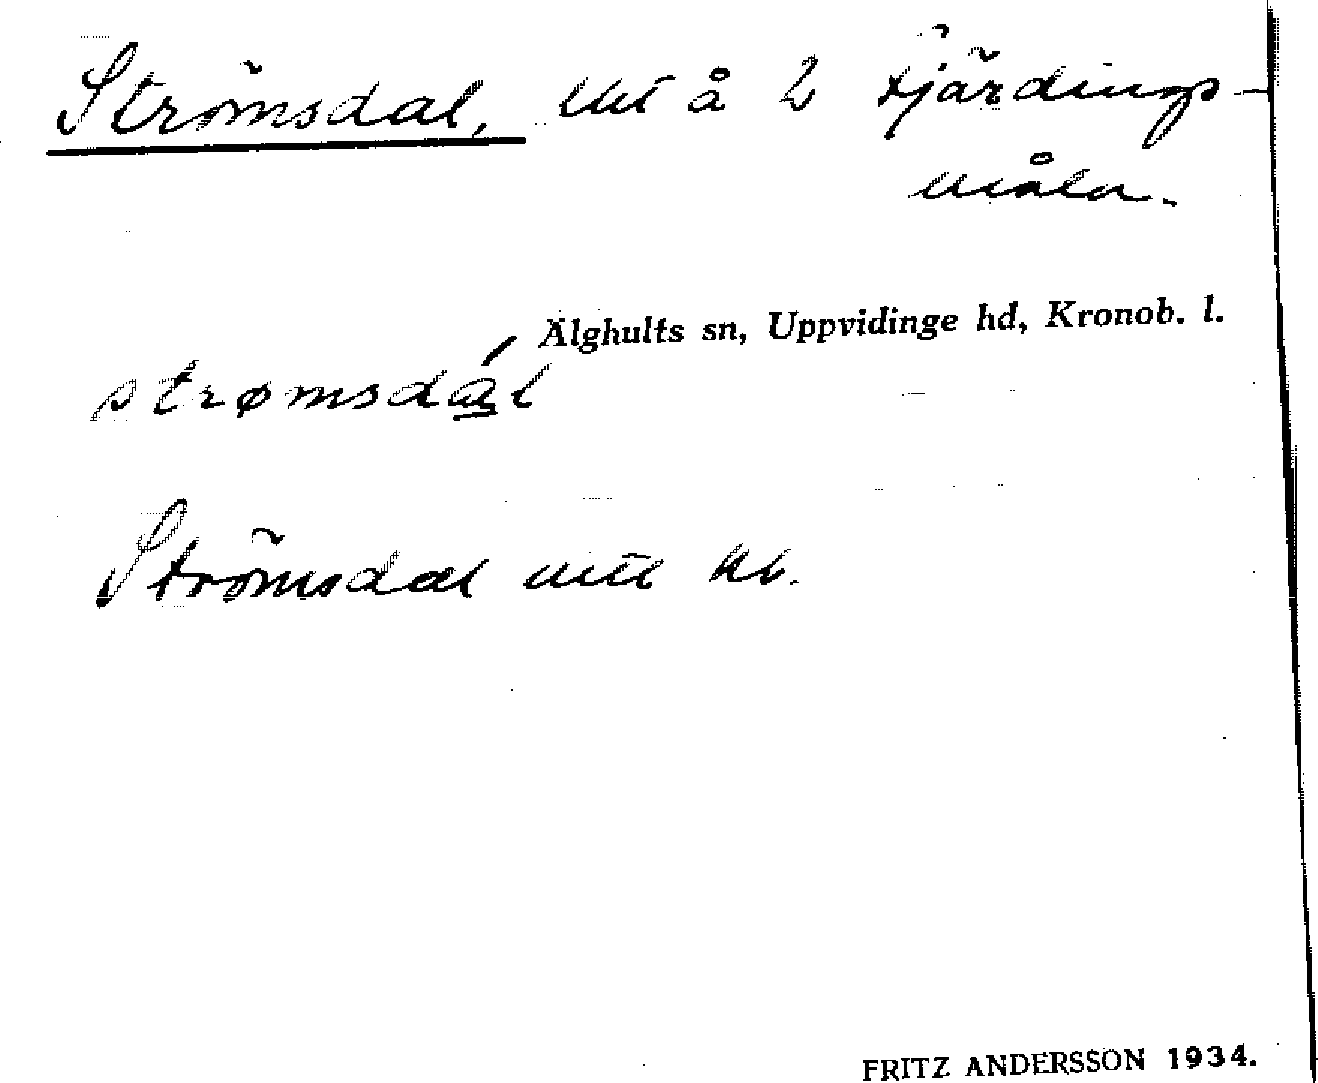 Strömsdal, lht å 2 Fjärdings-
måla.
Älghults sn, Uppvidinge hd, Kronob. l.
strømsdál
Strömsdal
FRITZ ANDERSSON 1934.